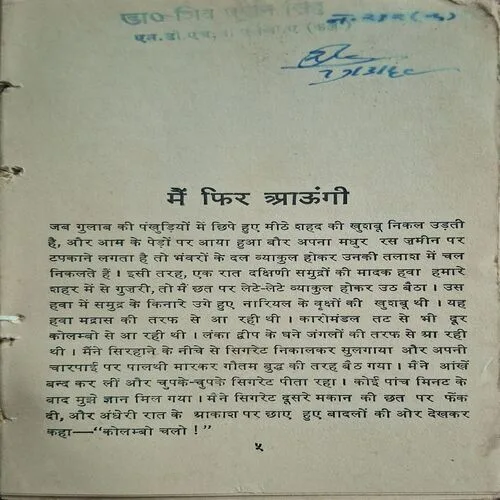 डा० शिव
मैं फिर आऊंगी
जब गुलाब की पंखुड़ियों में छिपे हुए मीठे शहद की खुशबू निकल उड़ती
है, और आम के पेड़ों पर आया हुआ बौर अपना मधुर रस ज़मीन पर
टपकाने लगता है तो भंवरों के दल व्याकुल होकर उनकी तलाश में चल
निकलते हैं । इसी तरह, एक रात दक्षिणी समुद्रों की मादक हवा हमारे
शहर में से गुज़री, तो मैं छत पर लेटे-लेटे व्याकुल होकर उठ बैठा । उस
हवा में समुद्र के किनारे उगे हुए नारियल के वृक्षों की खुशबू थी । यह
हवा मद्रास की तरफ से आ रही थी । कारोमंडल तट से भी दूर
कोलम्बो से आ रही थी । लंका द्वीप के घने जंगलों की तरफ से आ रही
थी । मैंने सिरहाने के नीचे से सिगरेट निकालकर सुलगाया और अपनी
चारपाई पर पालथी मारकर गौतम बुद्ध की तरह बैठ गया । मैंने आंखें
बन्द कर लीं और चुपके-चुपके सिगरेट पीता रहा । कोई पांच मिनट के
बाद मुझे ज्ञान मिल गया । मैंने सिगरेट दूसरे मकान की छत पर फेंक
दी, और अंधेरी रात के आकाश पर छाए हुए बादलों की ओर देखकर
कहा—"कोलम्बो चलो !"
५